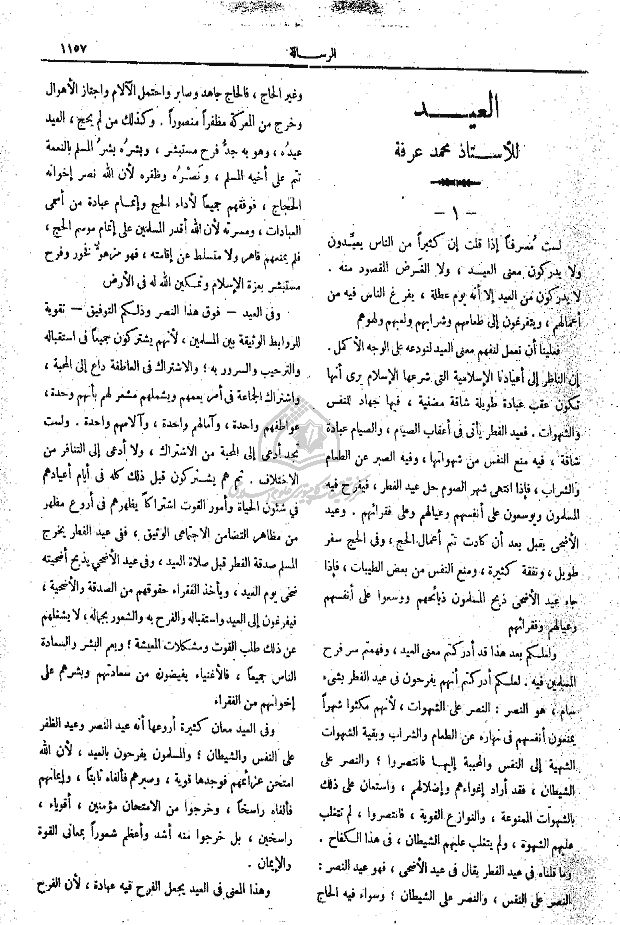 ١١٥٧
الرسالة
العيد
للأستاذ محمد عرفة
- ١ -
لست مُسرفاً إذا قلت إن كثيراً من الناس يعيّدون
ولا يدركون معنى العيد ، ولا الغرض المقصود منه .
لا يدركون من العيد إلا أنه يوم عطلة ، يفرغ الناس فيه من
أعمالهم ، ويتفرغون إلى طعامهم وشرابهم ولعبهم ولهوهم
فعلينا أن نعمل لنفهم معنى العيد لنودعه على الوجه الأكمل .
إن الناظر إلى أعيادنا الإسلامية التى شرعها الإسلام يرى أنها
تكون عقب عبادة طويلة شاقة مضنية ، فيها جهاد للنفس
والشهوات . فعيد الفطر يأتى فى أعقاب الصيام ، والصيام عبادة
شاقة ، فيه منع النفس من شهواتها ، وفيه الصبر عن الطعام
والشراب ، فإذا انتهى شهر الصوم حل عيد الفطر ، فيفرح فيه
المسلمون ويوسعون على أنفسهم وعيالهم وعلى فقرائهم . وعيد
الأضحى يقبل بعد أن كادت تتم أعمال الحج ، وفى الحج سفر
طويل ، ونفقة كثيرة ، ومنع النفس من بعض الطيبات ، فإذا
جاء عيد الأضحى ذبح المسلمون ذبائحهم ووسعوا على أنفسهم
وعيالهم وفقرائهم
ولعلكم بعد هذا قد أدركتم معنى العيد ، وفهمتم سر فرح
المسلمين فيه . لعلكم أدركتم أنهم يفرحون فى عيد الفطر بشىء
سام ، هو النصر : النصر على الشهوات ، لأنهم مكثوا شهراً
يمنعون أنفسهم فى نهاره عن الطعام والشراب وبقية الشهوات
الشهية إلى النفس والمحببة إليها فانتصروا ؛ والنصر على
الشيطان ، فقد أراد إغواءهم وإضلالهم ، واستعان على ذلك
بالشهوات الممنوعة ، والنوازع القوية ، فانتصروا ، لم تتغلب
عليهم الشهوة ، ولم يتغلب عليهم الشيطان ، فى هذا الكفاح .
وما قلناه فى عيد الفطر يقال فى عيد الأضحى ، فهو عيد النصر :
النصر على النفس ، والنصر على الشيطان ؛ وسواء فيه الحاج
وغير الحاج ، فالحاج جاهد وصابر واحتمل الآلام واجتاز الأهوال
وخرج من المعركة مظفراً منصوراً . وكذلك من لم يحج ، العيد
عيدُه ، وهو به جدُّ فرح مستبشر ، وبشره بشرُ المسلم بالنعمة
تتم على أخيه المسلم ، ونَصْرُه وظفره لأن الله نصر إخوانه
الحجاج ، فوفقهم جميعاً لأداء الحج وإتمام عبادة من أسمى
العبادات ، ومسرّته لأن الله أقدر المسلمين على إتمام موسم الحج ،
فلم يمنعهم قاهر ولا متسلط عن إقامته ، فهو مزهوٌّ فخور وفرح
مستبشر بعزة الإسلام وتمكين الله له فى الأرض
وفى العيد — فوق هذا النصر وذلكم التوفيق — تقوية
للروابط الوثيقة بين المسلمين ، لأنهم يشتركون جميعاً فى استقباله
والترحيب والسرور به ؛ والاشتراك فى العاطفة داع إلى المحبة ،
واشتراك الجماعة فى أمر يعمهم ويشملهم مشعر لهم بأنهم وحدة ،
عواطفهم واحدة ، وآمالهم واحدة ، وآلامهم واحدة . ولست
تجد أدعى إلى المحبة من الاشتراك ، ولا أدعى إلى التنافر من
الاختلاف . ثم هم يشتركون قبل ذلك كله فى أيام أعيادهم
فى شئون الحياة وأمور القوت اشتراكاً يظهرهم فى أروع مظهر
من مظاهر التضامن الاجتماعى الوثيق ، ففى عيد الفطر يخرج
المسلم صدقة الفطر قبل صلاة العيد ، وفى عيد الأضحى يذبح أضحيته
ضحى يوم العيد ، ويأخذ الفقراء حقوقهم من الصدقة والأضحية ،
فيفرغون إلى العيد واستقباله والفرح به والشعور بجماله ، لا يشغلهم
عن ذلك طلب القوت ومشكلات المعيشة ؛ ويعم البشر والسعادة
الناس جميعاً ، فالأغنياء يفيضون من سعادتهم وبشرهم على
إخوانهم من الفقراء
وفى العيد معان كثيرة أروعها أنه عيد النصر وعيد الظفر
على النفس والشيطان ؛ والمسلمون يفرحون بالعيد ، لأن الله
امتحن عزائمهم فوجدها قوية ، وصبرهم فألفاه ثابتاً ، وإيمانهم
فألفاه راسخاً ، وخرجوا من الامتحان مؤمنين ، أقوياء ،
راسخين ، بل خرجوا منه أشد وأعظم شعوراً بمعانى القوة
والإيمان .
وهذا المعنى فى العيد يجعل الفرح فيه عبادة ، لأن الفرح